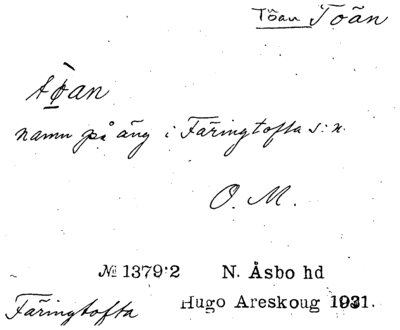 Töan Toän
tø̀an
namn på äng i Färingtofta s:n.
O. M.
№ 1379:2 N. Åsbo hd
Färingtofta Hugo Areskoug 1931.